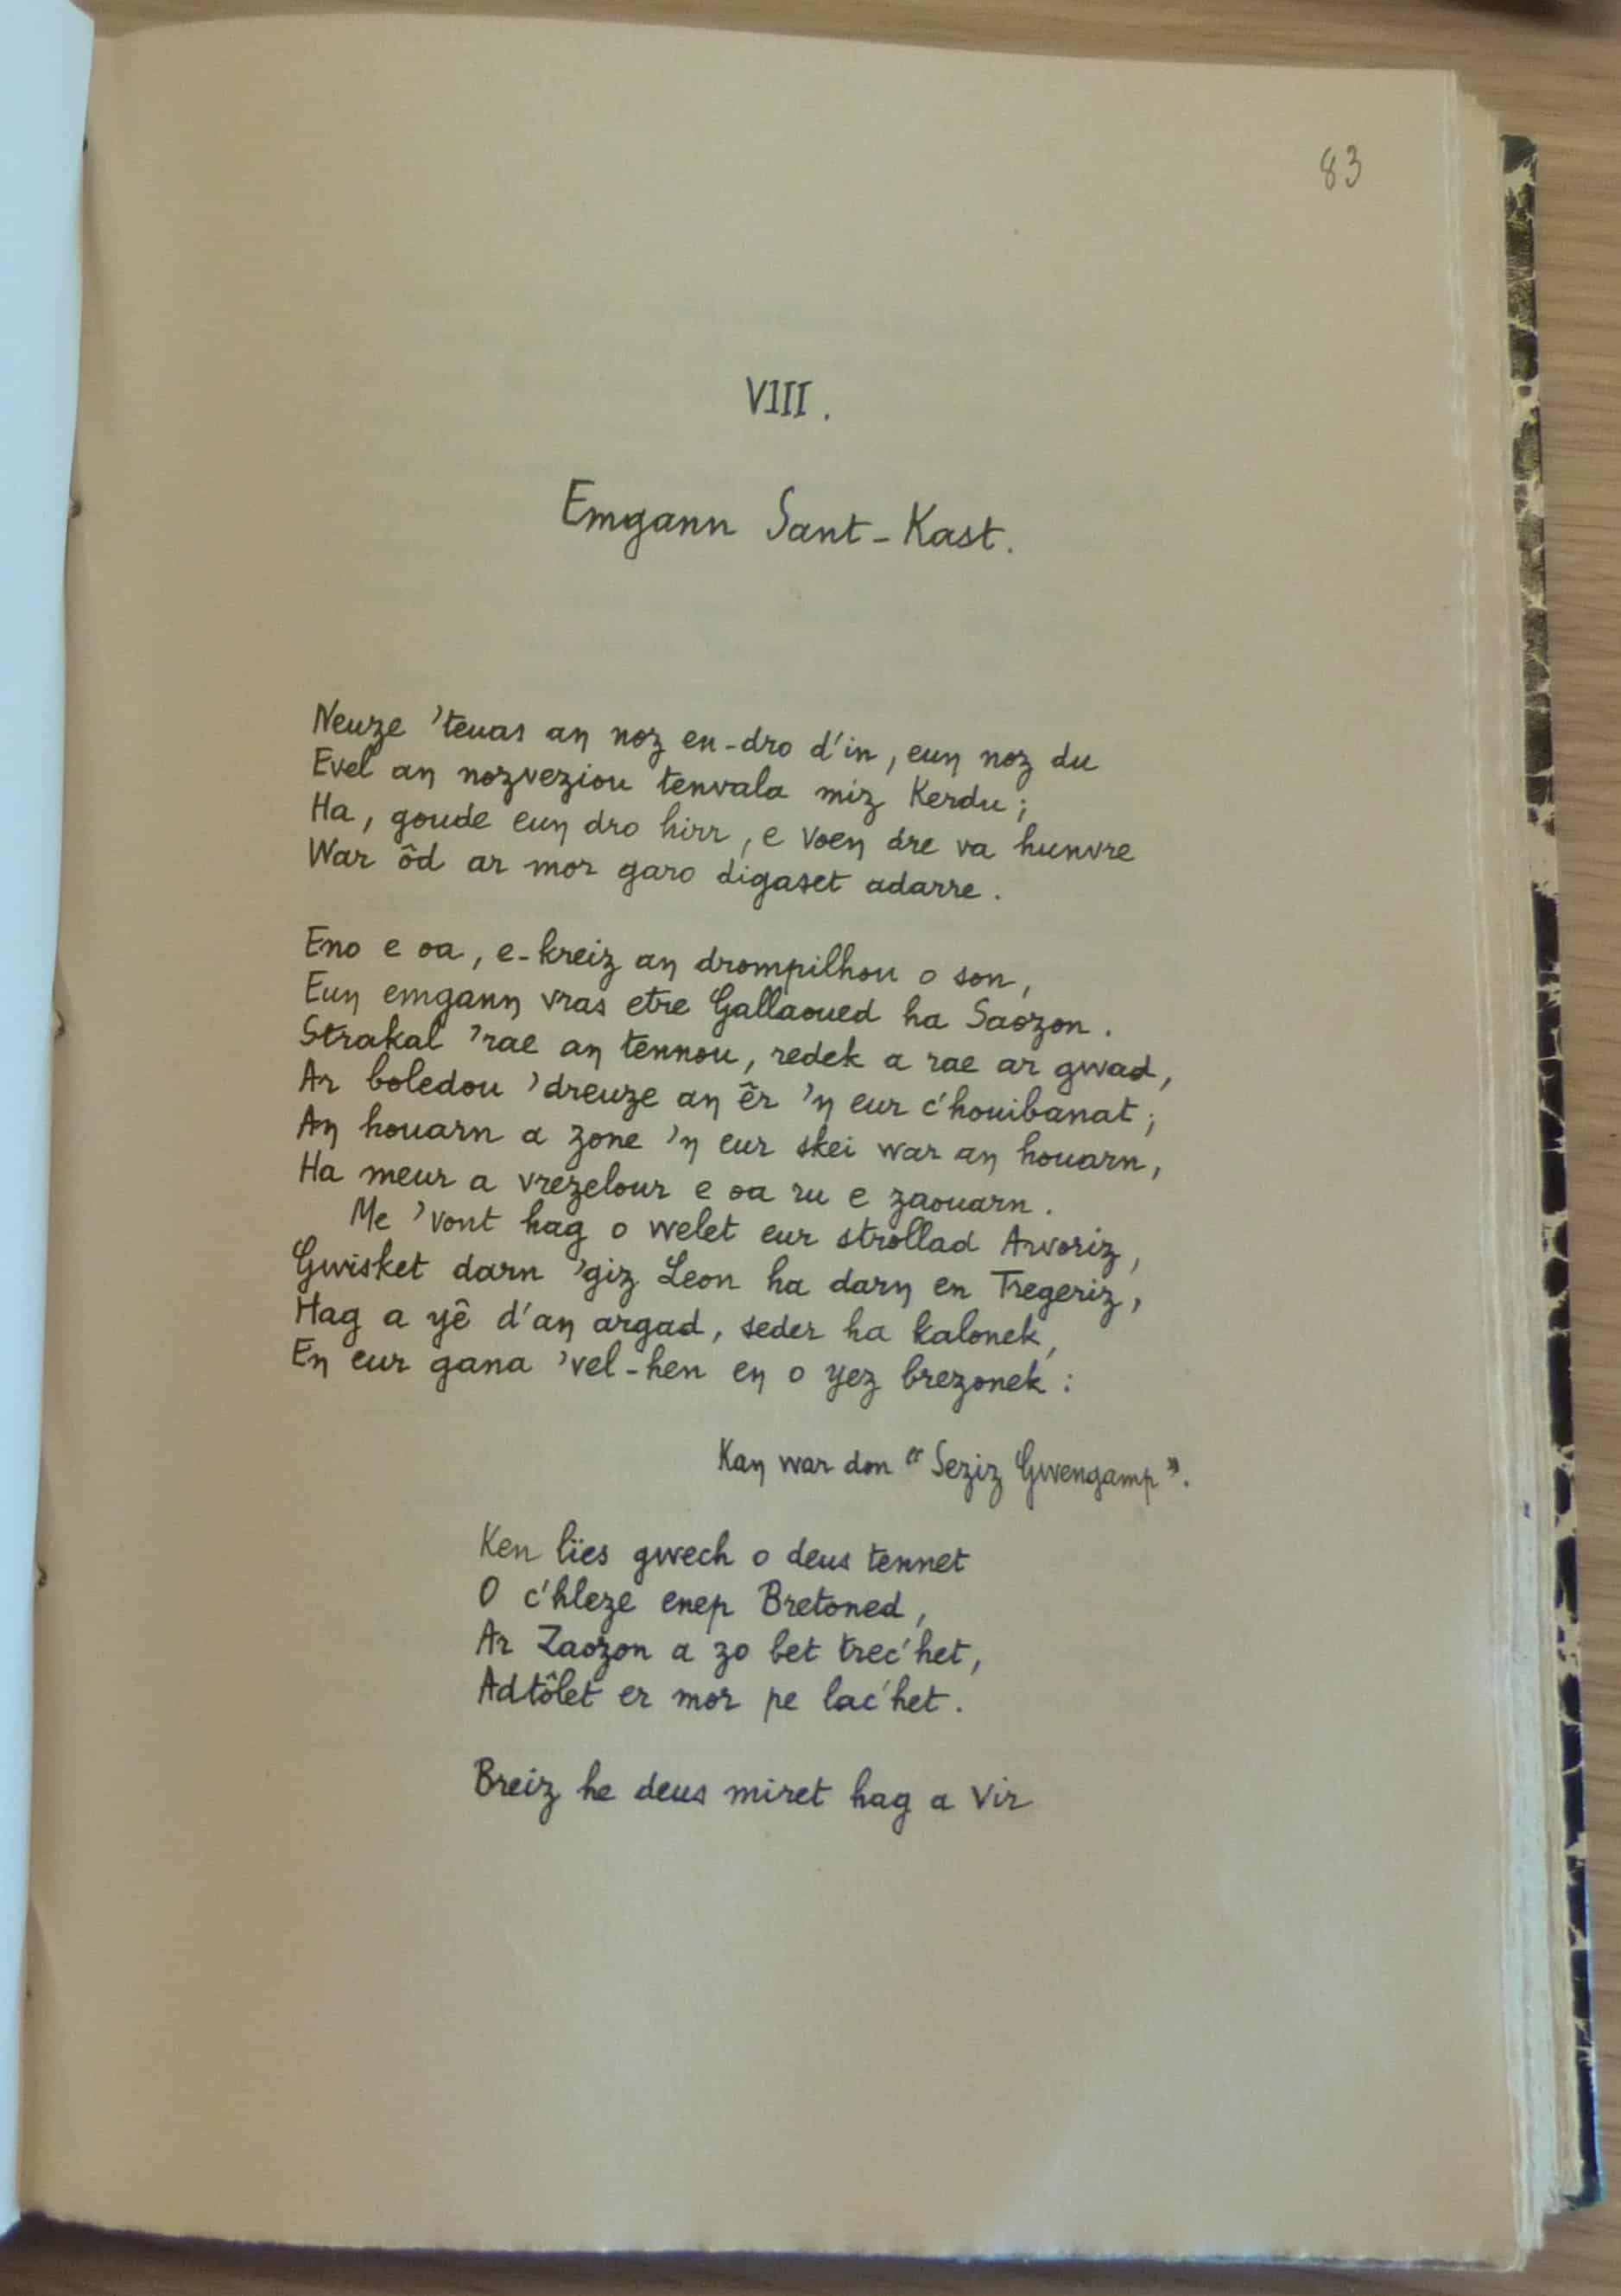 83
VIII.
Emgann Sant-Kast.
Neuze 'teuas aŋ noz en-dro d'in, euŋ noz du
Evel aŋ nozveziou tenvala miz Kerdu;
Ha, goude euŋ dro hirr, e voeŋ dre va hunvre
War ôd ar mor garo digaset adarre.
Eno e oa, e-kreiz aŋ drompilhou o son,
Euŋ emgannŋ vras etre Gallaoued ha Saozon.
Strakal 'rae aŋ tennou, redek a rae ar gwad,
Ar boledou 'dreuze aŋ êr 'ŋ eur c'houibanat;
Aŋ houarn a zone 'ŋ eur skei war aŋ houarn,
Ha meur a vrezelour e oa ru e zaouarn.
Me 'vont hag o welet eur strollad Arvoriz,
Gwisket darn 'giz Leon ha darŋ en Tregeriz,
Hag a yê d'aŋ argad, seder ha kalonek,
Eŋ eur gana 'vel-hen eŋ o yez brezonek:
Kaŋ war don "Seziz Gwengamp".
Ken lïes gwech o deus tennet
O c'hleze enep Bretoned,
Ar Zaozon a zo bet trec'het,
Adtôlet er mor pe lac'het.
Breiz he deus miret hag a vir